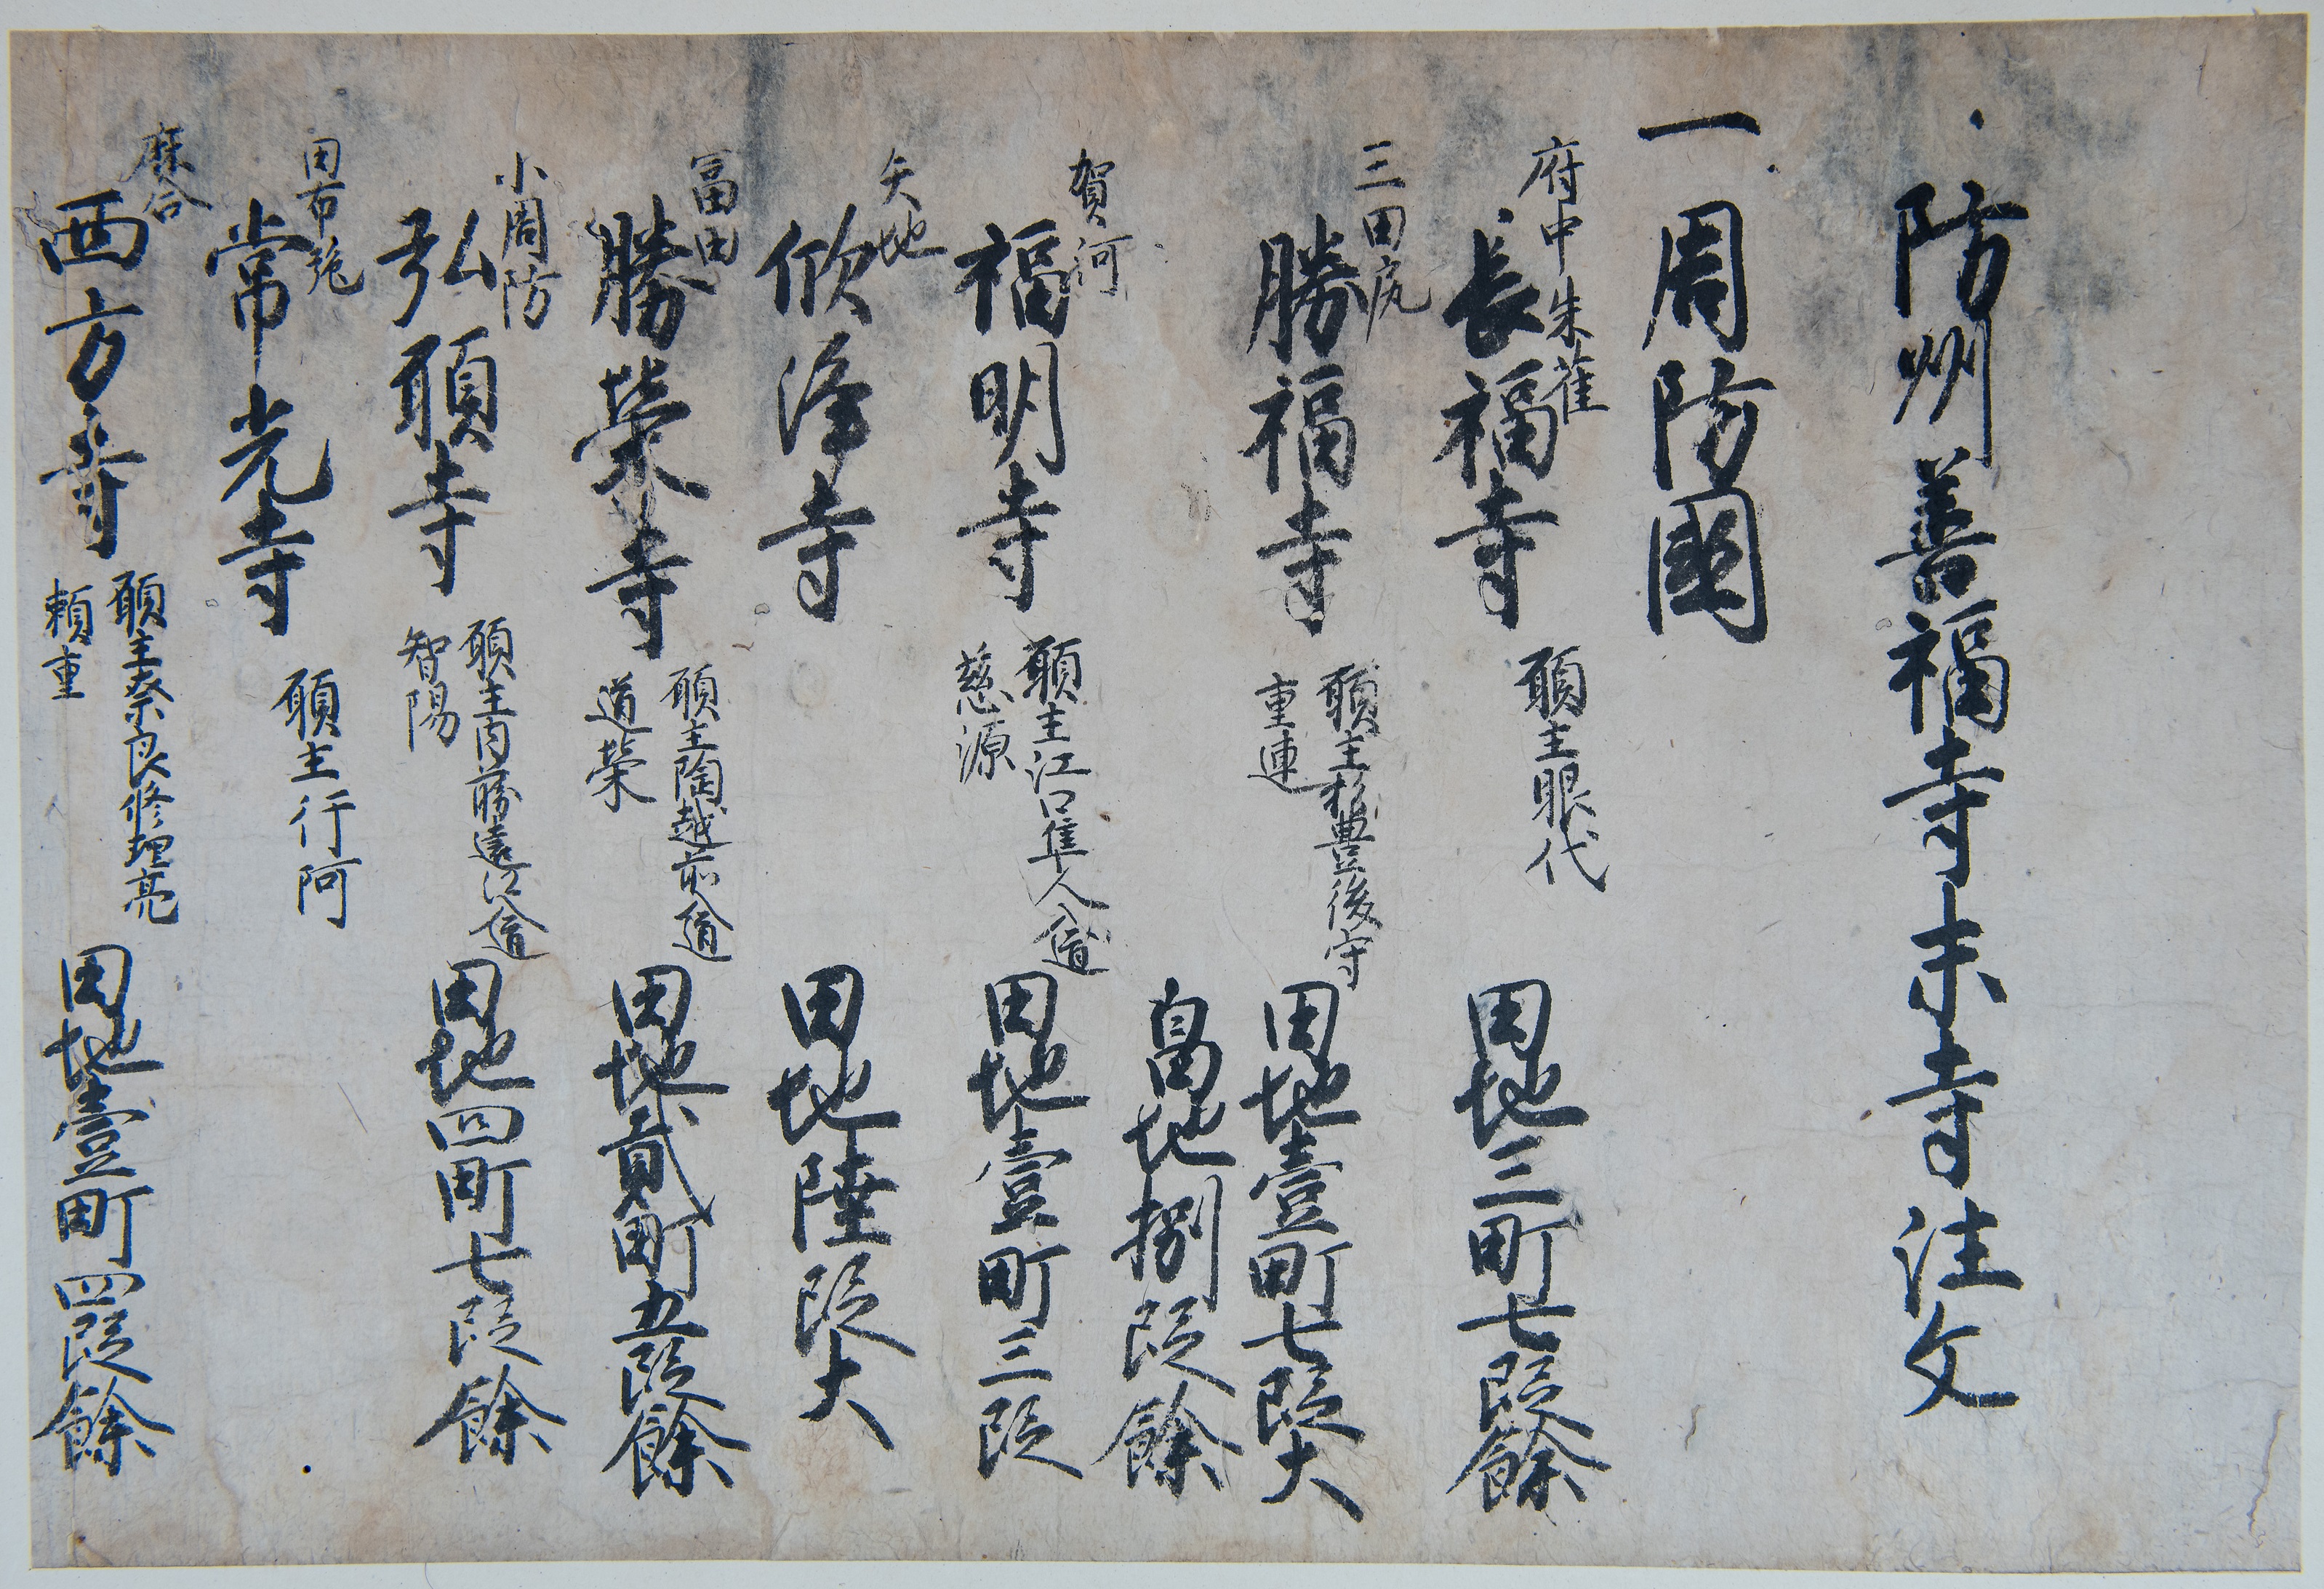 防州善福寺末寺注文
一周防國
府中朱雀
長福寺
願主眼代
田地三町七段餘
三田尻
勝福寺
願主杉豊後守
重連
田地壹町七段大
畠地捌段餘
賀河
福明寺
願主江口隼人入道
慈源
田地壹町三段
矢地
欣淨寺
田地陸段大
冨田
勝榮寺
願主陶越前入道
道榮
田地貳町五段餘
小周防
弘願寺
願主内藤遠江入道
智陽
田地四町七段餘
田布施
常光寺
願主行阿
麻合
西方寺
願主奈良修理亮
頼重
田地壹町四段餘